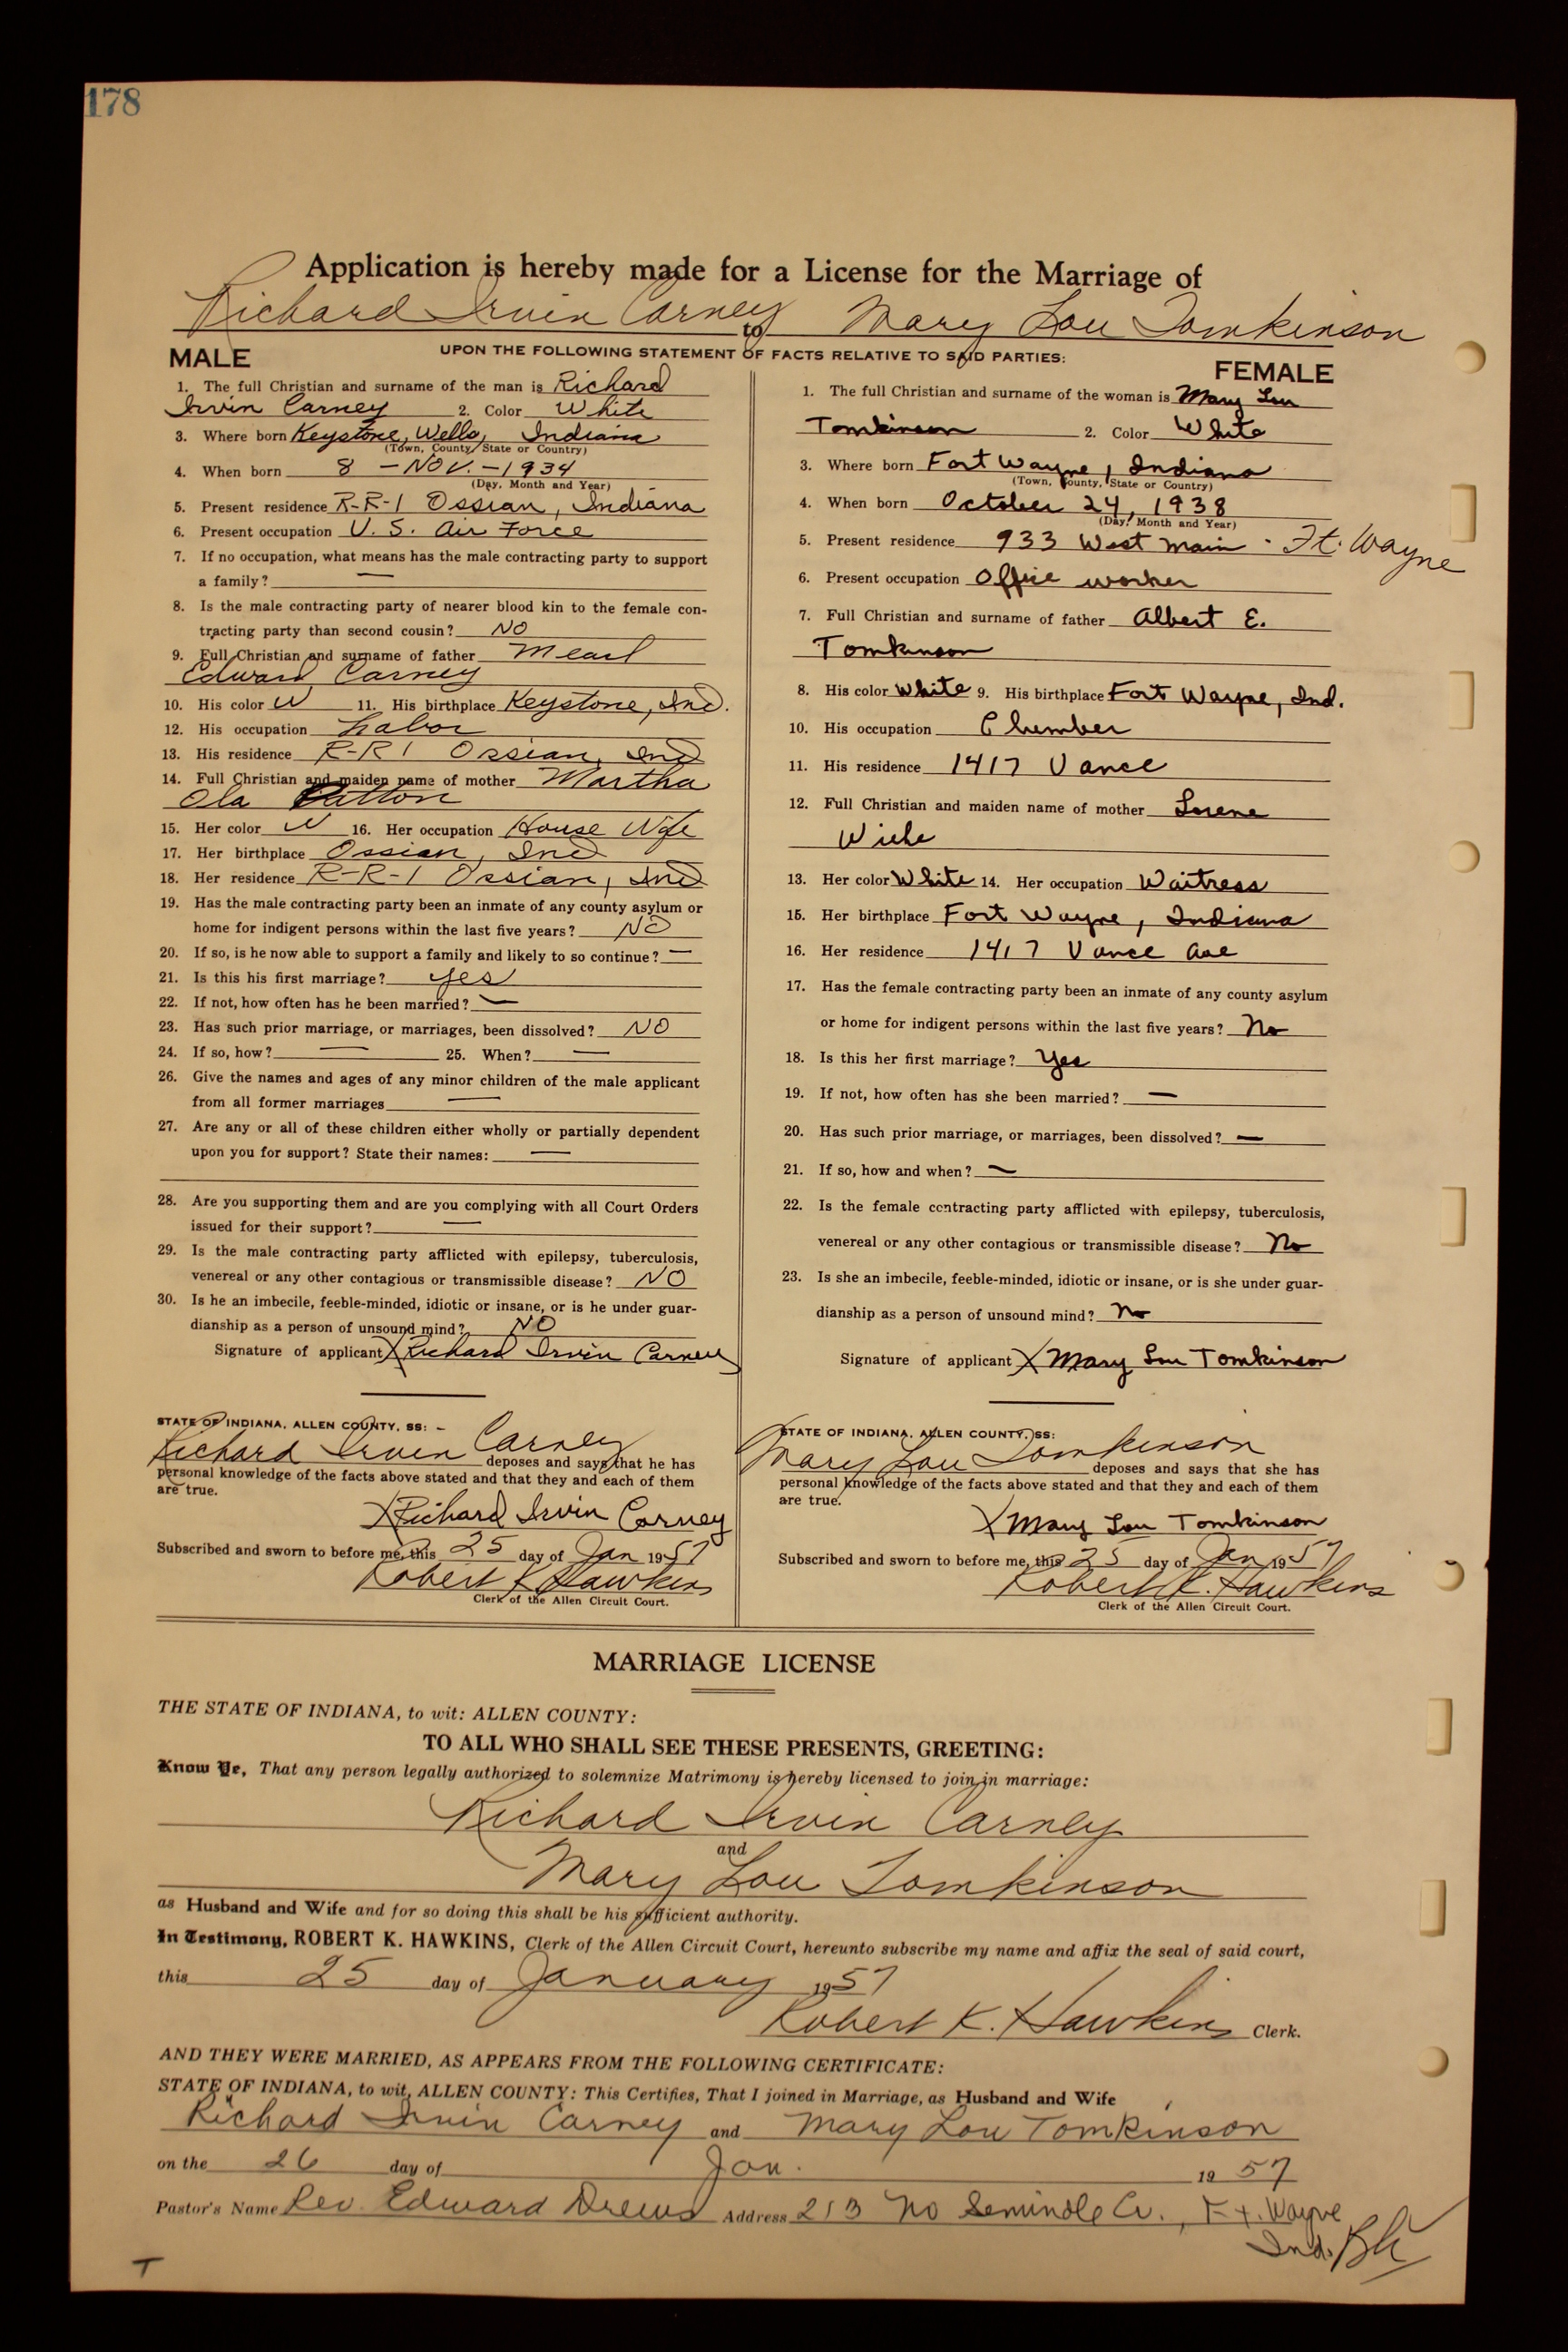 178
Application is hereby made for a License for the Marriage of
Richard Irvin Carney to Mary Lou Tomkinson
UPON THE FOLLOWING STATEMENT OF FACTS RELATIVE TO SAID PARTIES:
MALE
1. The full Christian and surname of the man is Richard
Irvin Carney 2. Color White
3. Where born Keystone, Wells, Indiana
(Town, County, State or Country)
4. When born 8 - NOV. - 1934
(Day, Month and Year)
5. Present residence R-R-1 Ossian, Indiana
6. Present occupation U.S. Air Force
7. If no occupation, what means has the male contracting party to support
a family? —
8. Is the male contracting party of nearer blood kin to the female con-
tracting party than second cousin? NO
9. Full Christian and surname of father Mearl
Edward Carney
10. His color W 11. His birthplace Keystone, Ind.
12. His occupation Labor
13. His residence R-R1 Ossian, Ind
14. Full Christian and maiden name of mother Martha
Ola Patton
15. Her color W 16. Her occupation House Wife
17. Her birthplace Ossian, Ind
18. Her residence R-R-1 Ossian, Ind
19. Has the male contracting party been an inmate of any county asylum or
home for indigent persons within the last five years? NO
20. If so, is he now able to support a family and likely to so continue? —
21. Is this his first marriage? yes
22. If not, how often has he been married? —
23. Has such prior marriage, or marriages, been dissolved? NO
24. If so, how? — 25. When? —
26. Give the names and ages of any minor children of the male applicant
from all former marriages —
27. Are any or all of these children either wholly or partially dependent
upon you for support? State their names: —
28. Are you supporting them and are you complying with all Court Orders
issued for their support? —
29. Is the male contracting party afflicted with epilepsy, tuberculosis,
venereal or any other contagious or transmissible disease? NO
30. Is he an imbecile, feeble-minded, idiotic or insane, or is he under guar-
dianship as a person of unsound mind? NO
Signature of applicant X Richard Irvin Carney
STATE OF INDIANA, ALLEN COUNTY, SS: -
Richard Irvin Carney deposes and says that he has
personal knowledge of the facts above stated and that they and each of them
are true.
X Richard Irvin Carney
Subscribed and sworn to before me, this 25 day of Jan 1957
Robert K Hawkins
Clerk of the Allen Circuit Court.
FEMALE
1. The full Christian and surname of the woman is Mary Lou
Tomkinson 2. Color White
3. Where born Fort Wayne, Indiana
(Town, County, State or Country)
4. When born October 24, 1938
(Day, Month and Year)
5. Present residence 933 West Main - Ft. Wayne
6. Present occupation Office worker
7. Full Christian and surname of father Albert E.
Tomkinson
8. His color White 9. His birthplace Fort Wayne, Ind.
10. His occupation Plumber
11. His residence 1417 Vance
12. Full Christian and maiden name of mother Lorene
Wiehe
13. Her color White 14. Her occupation Waitress
15. Her birthplace Fort Wayne, Indiana
16. Her residence 1417 Vance Ave
17. Has the female contracting party been an inmate of any county asylum
or home for indigent persons within the last five years? No
18. Is this her first marriage? Yes
19. If not, how often has she been married? —
20. Has such prior marriage, or marriages, been dissolved? —
21. If so, how and when? —
22. Is the female contracting party afflicted with epilepsy, tuberculosis,
venereal or any other contagious or transmissible disease? No
23. Is she an imbecile, feeble-minded, idiotic or insane, or is she under guar-
dianship as a person of unsound mind? no
Signature of applicant X Mary Lou Tomkinson
STATE OF INDIANA, ALLEN COUNTY, SS:
Mary Lou Tomkinson deposes and says that she has
personal knowledge of the facts above stated and that they and each of them
are true.
X Mary Lou Tomkinson
Subscribed and sworn to before me, this 25 day of Jan 1957
Robert K. Hawkins
Clerk of the Allen Circuit Court.
MARRIAGE LICENSE
THE STATE OF INDIANA, to wit: ALLEN COUNTY:
TO ALL WHO SHALL SEE THESE PRESENTS, GREETING:
Know Ye, That any person legally authorized to solemnize Matrimony is hereby licensed to join in marriage:
Richard Irvin Carney
and
Mary Lou Tomkinson
as Husband and Wife and for so doing this shall be his sufficient authority.
In Testimony, ROBERT K. HAWKINS, Clerk of the Allen Circuit Court, hereunto subscribe my name and affix the seal of said court,
this 25 day of January 1957
Robert K. Hawkins Clerk.
AND THEY WERE MARRIED, AS APPEARS FROM THE FOLLOWING CERTIFICATE:
STATE OF INDIANA, to wit, ALLEN COUNTY: This Certifies, That I joined in Marriage, as Husband and Wife
Richard Irvin Carney and Mary Lou Tomkinson
on the 26 day of Jan. 1957
Pastor's Name Rev. Edward Drews Address 213 No Seminole Cr., Ft. Wayne
Ind.
T